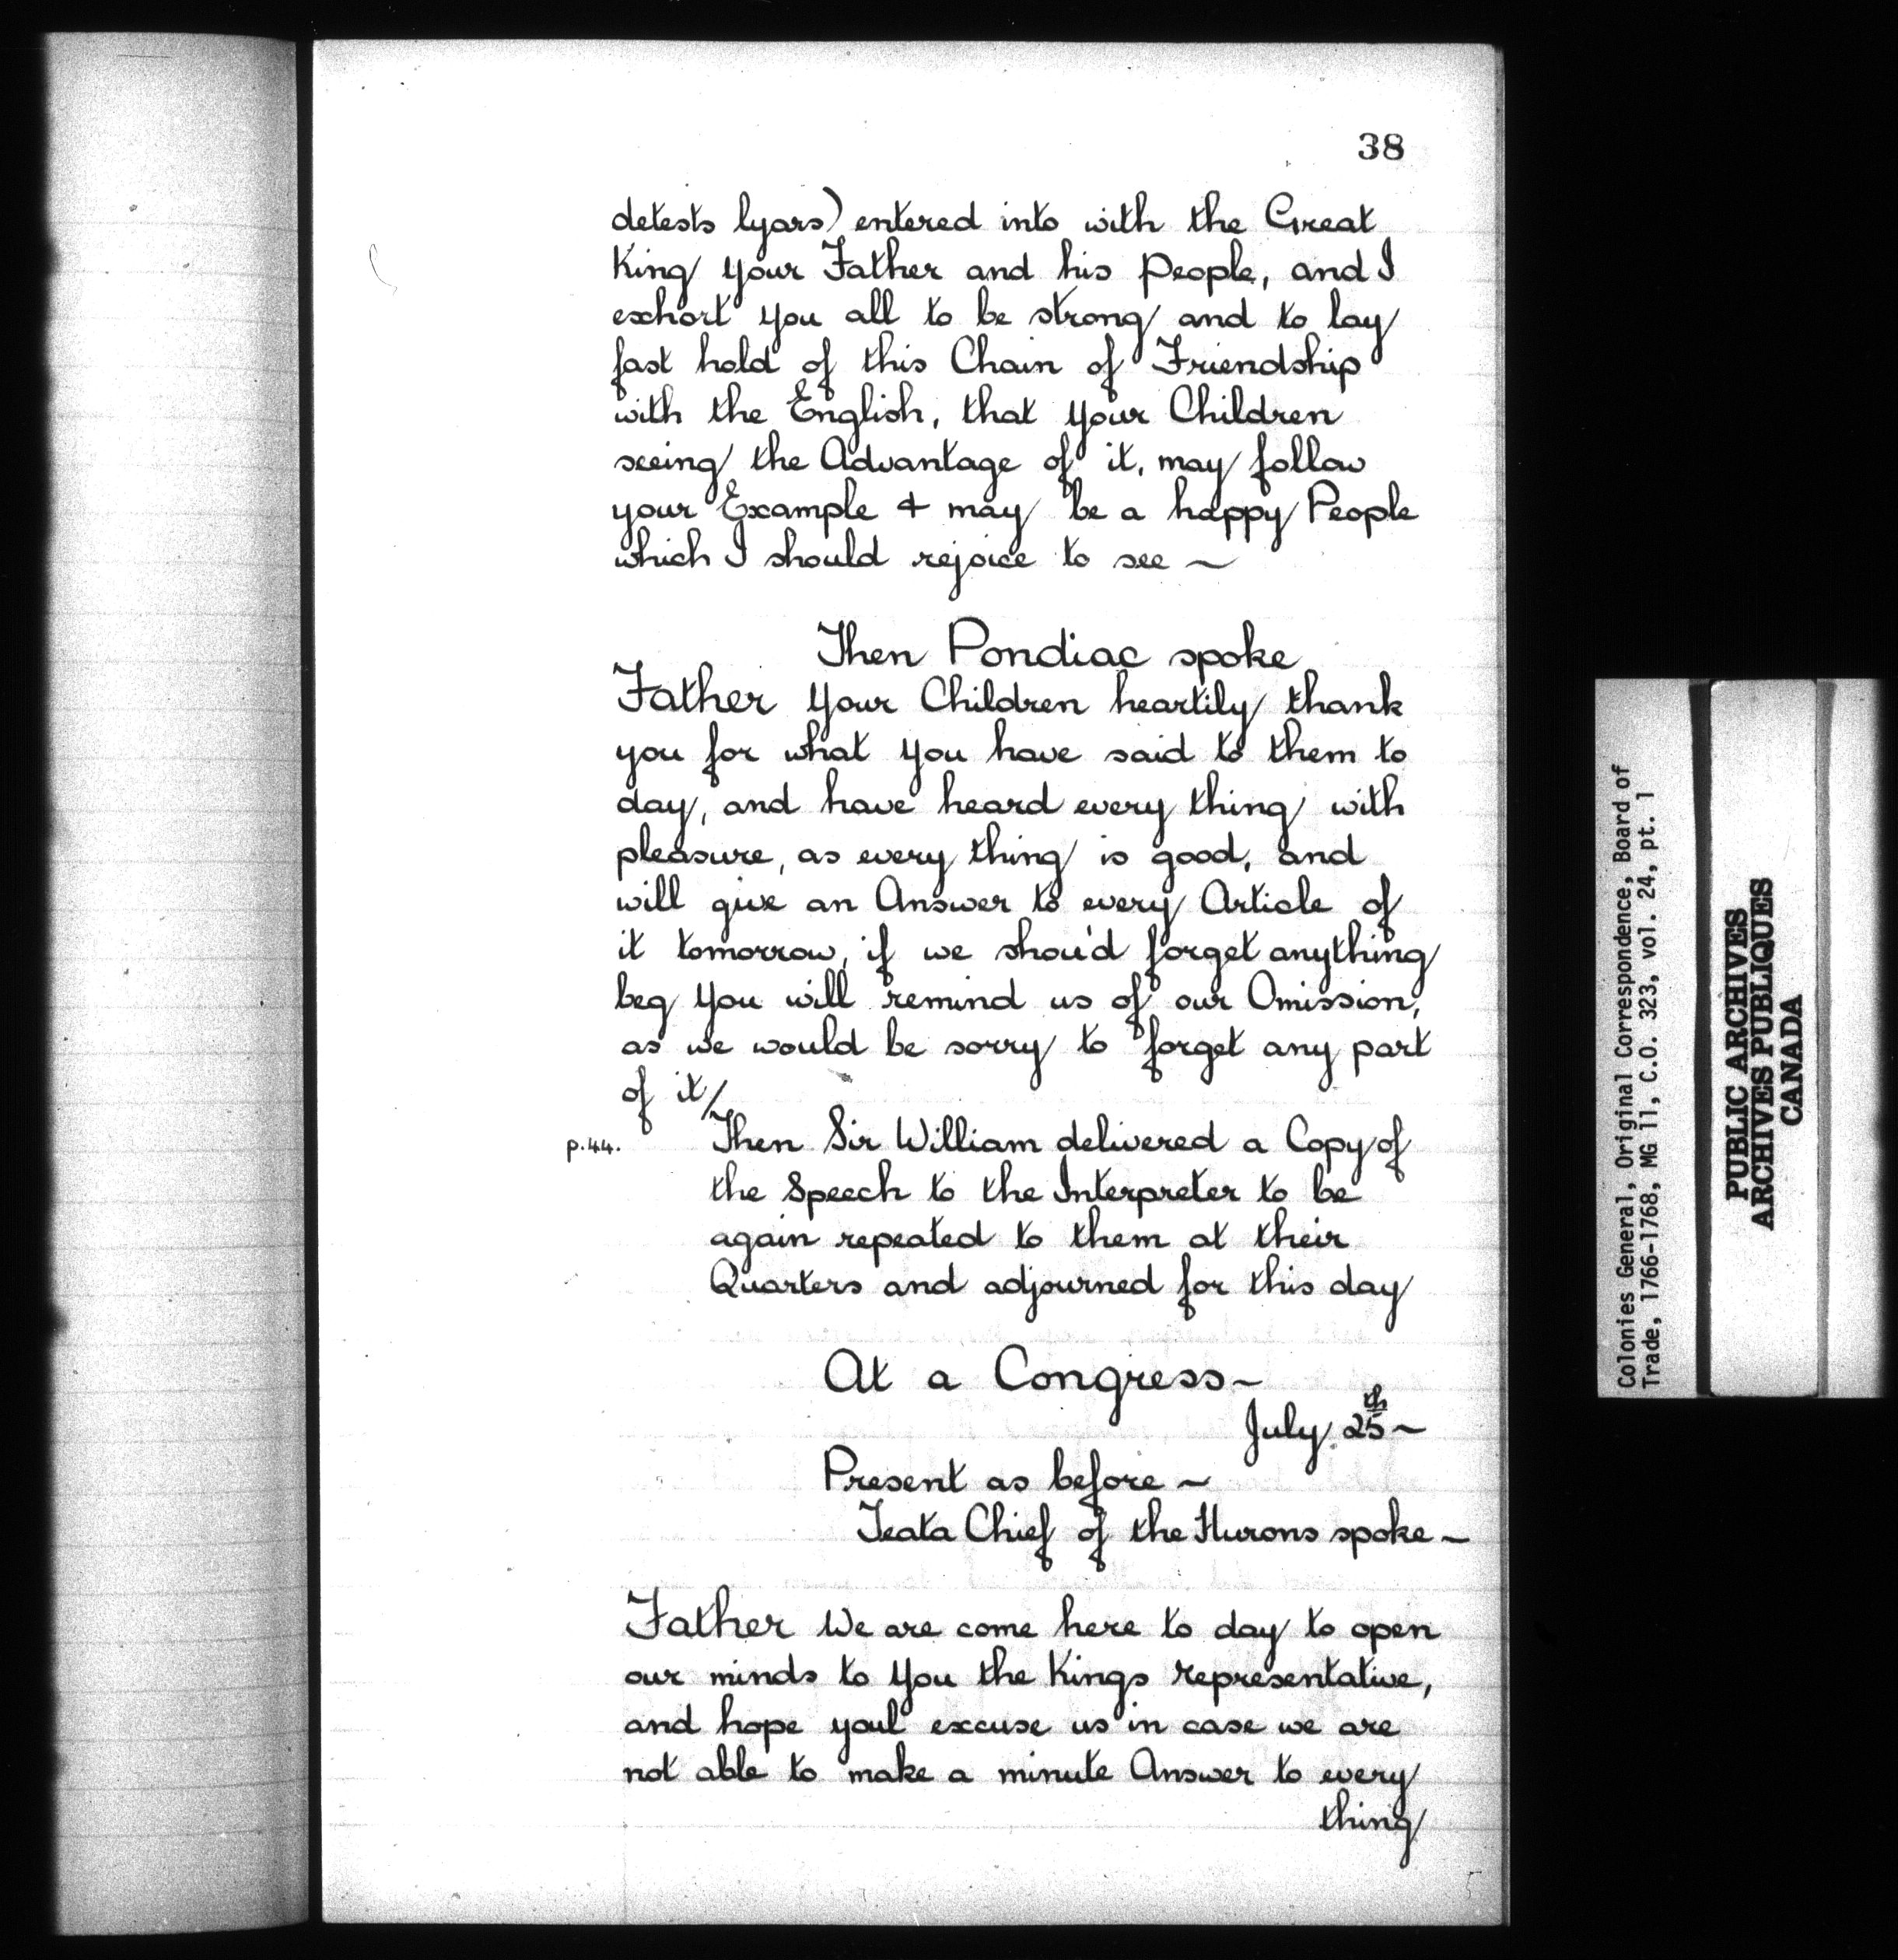 38
detests lyars) entered into with the Great
King your Father and his People, and I
exhort you all to be strong and to lay
fast hold of this Chain of Friendship
with the English, that your Children
seeing the Advantage of it, may follow
your Example & may be a happy People
which I should rejoice to see ~
Then Pondiac spoke
Father Your Children heartily thank
you for what you have said to them to
day, and have heard every thing with
pleasure, as every thing is good, and
will give an Answer to every Article of
it tomorrow, if we shou'd forget anything
beg you will remind us of our Omission,
as we would be sorry to forget any part
of it/
p.44.
Then Sir William delivered a Copy of
the Speech to the Interpreter to be
again repeated to them at their
Quarters and adjourned for this day
At a Congress~
July 25th~
Present as before ~
Teata Chief of the Hurons spoke~
Father We are come here to day to open
our minds to you the Kings representative,
and hope youl excuse us in case we are
not able to make a minute Answer to every
thing
Colonies General, Original Correspondence, Board of
Trade, 1766-1768, MG 11, C.O. 323, vol. 24, pt. 1
PUBLIC ARCHIVES
ARCHIVES PUBLIQUES
CANADA